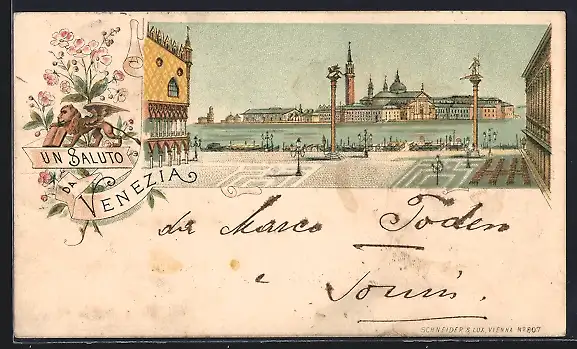 UN SALUTO
DA
VENEZIA
da Marco Toden
e
SCHNEIDER & LUX, VIENNA Nº 807